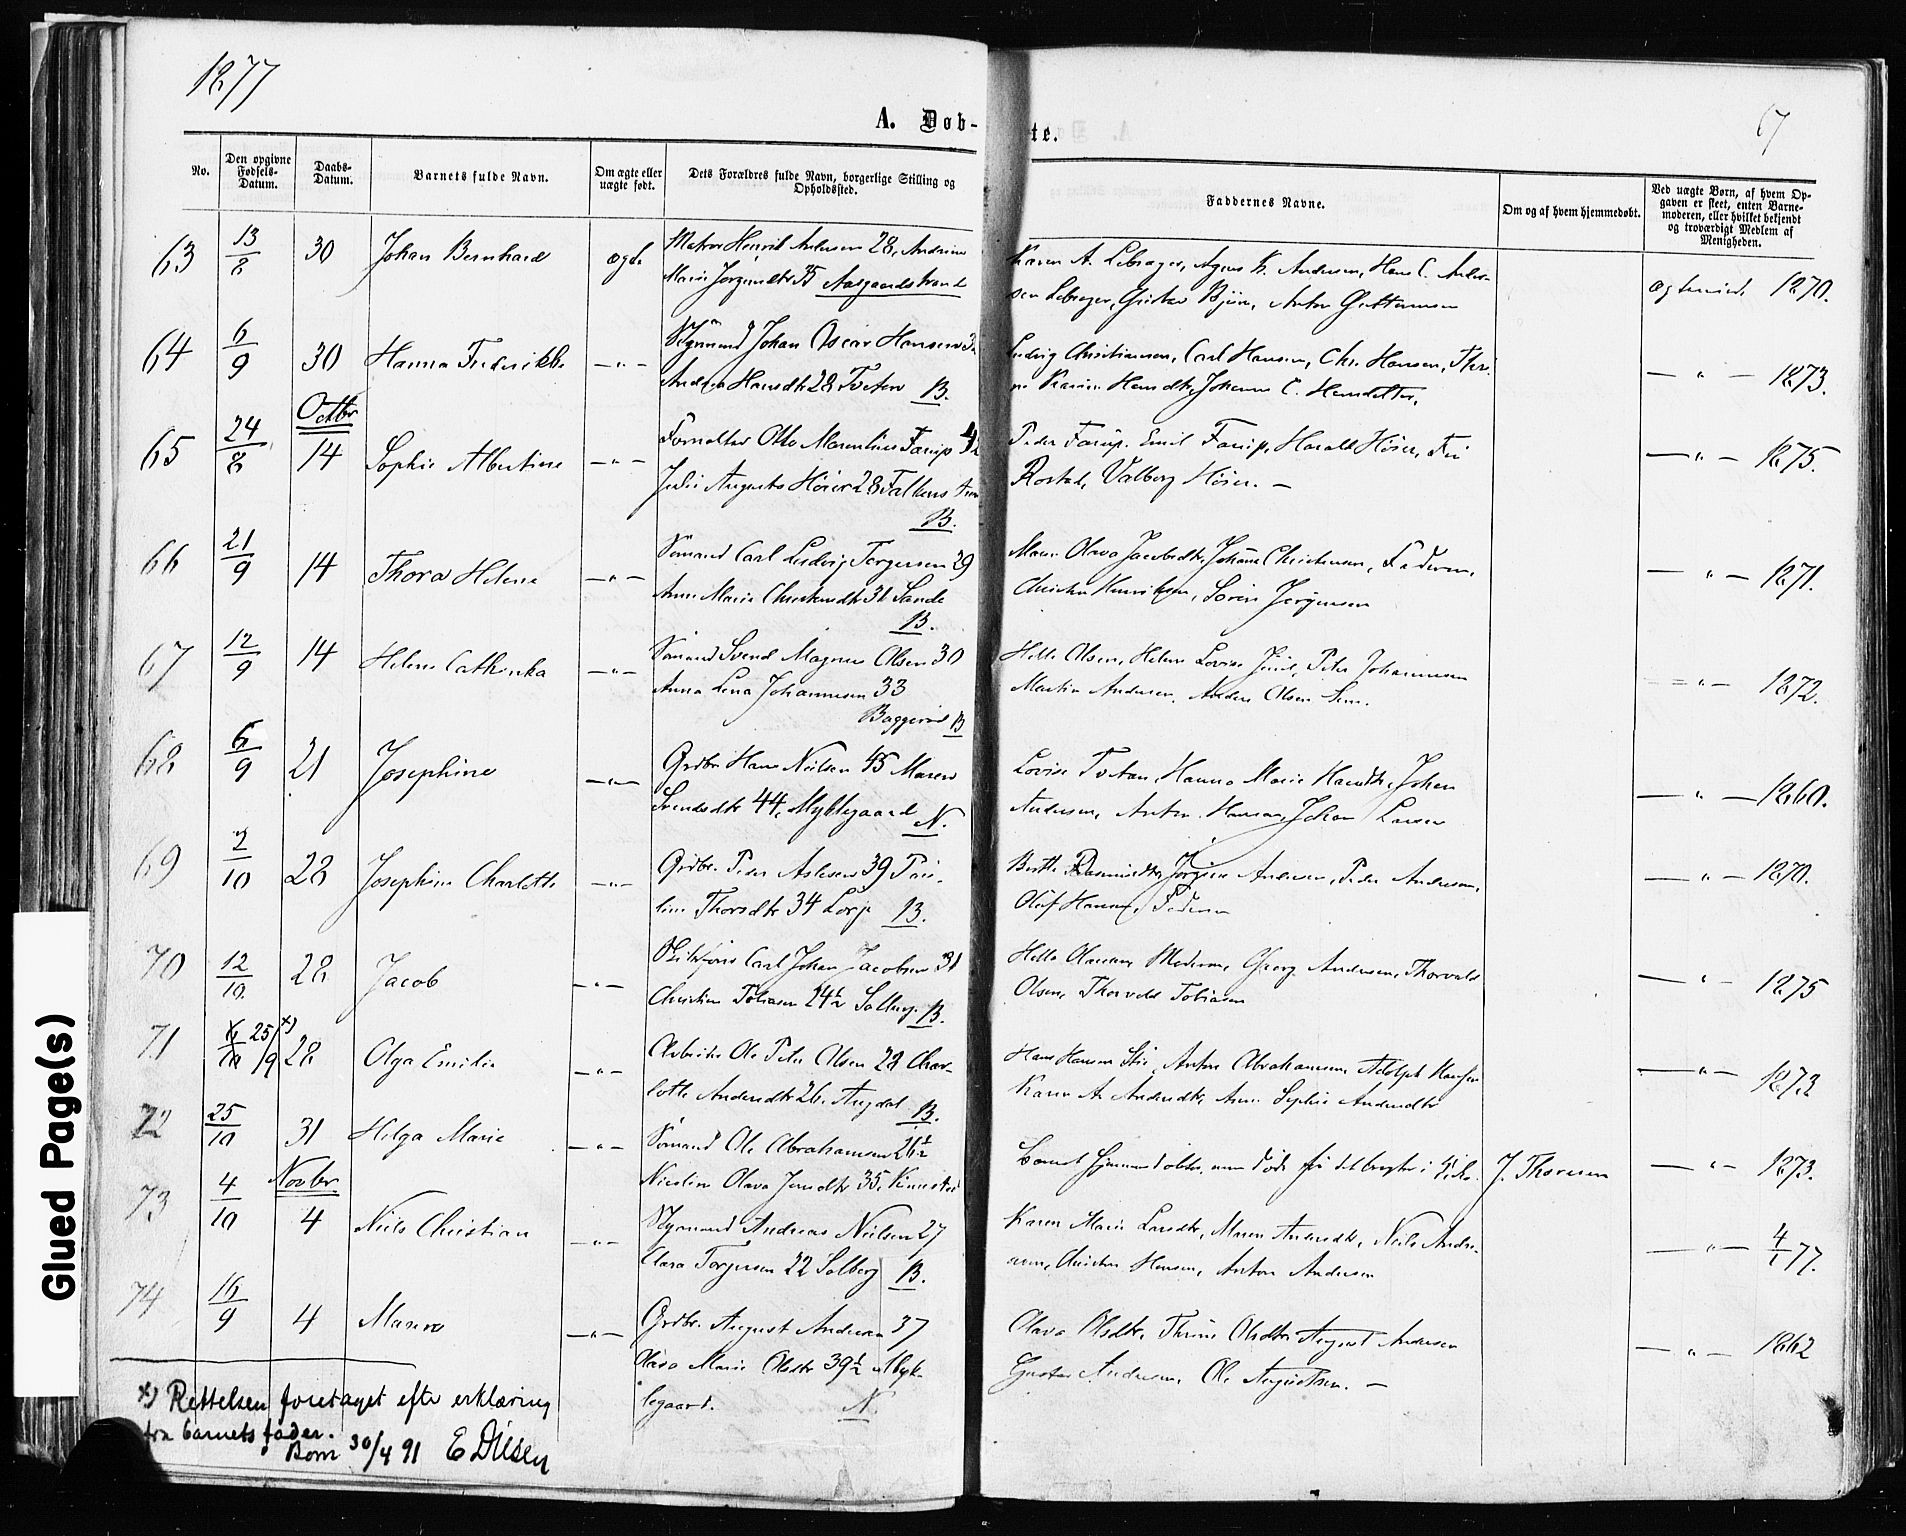 1877
67
A. Døb-
te.
No.
Den opgivne Fødsels-Datum.
Daabs-Datum.
Barnets fulde Navn.
Om ægte eller uægte født.
Dets Forældres fulde Navn, borgerlige Stilling og Opholdssted.
Faddernes Navne.
Om og af hvem hjemmedøbt.
Ved uægte Børn, af hvem Opgaven er skeet, enten Barnemoderen, eller hvilket bekjendt og troværdigt Medlem af Menigheden.
63 13/8 30 Johan Bernhard ægte Henrik Andersen 28, Andrine
Marie Jørgensdtr 35 Aasgaardstrand
Karen A. Lebsager, Agnes K. Andersen, Hans C. Ander-
sen Lebsager, Gustav Bjørn, Anton Guttormsen
1870.
64 6/9 30 Hanna Fredrikke —"— Styrmand Johan Oscar Hansen
Andrea Hansdtr 28 Tveten B.
Ludvig Christiansen, Carl Hansen, Chr. Hansen,
Karine Hansdtr, Johanne C. Hansdatter,
—"— 1873.
Octbr
65 24/8 14 Sophie Albertine —"— Forvalter Otto Marentius Farup 42
Julie Augusta Høier 28 Falkens
B.
Peder Farup, Emil Farup, Harald Høier,
Rostad, Valborg Høier. —
—"— 1875.
66 21/9 14 Thora Helene —"— Sømand Carl Ludvig Torgersen 29
Anne Marie Christensdtr 31 Sande
B.
Olava Jacobsdtr, Johan Christensen, Faderen,
Christen Henriksen, Søren Jørgensen
—"— 1871.
67 12/9 14 Helene Cathinka —"— Sømand Svend Magnus Olsen 30
Anna Lena Johannesen 33
Baggerød B
Helle Olsen, Helene Lovise Juul, Peter Johannesen
Martin Andersen, Anders Olsen Sem.
—"— 1872.
68 6/9 21 Josephine —"— Grdbr Hans Nielsen 45 Maren
Svendsdtr 44, Myklegaard N.
Lovise Tveten, Hanna Marie Hansdtr, Johan
Andersen, Anton Hansen, Johan Larsen
—"— 1860.
69 2/10 28 Josephine Charlotte —"— Grdbr. Peder Aslesen 39 Pau-
line Thorsdtr 34 Lorje B.
Berthe Rasmusdtr, Jørgine Andersen, Peder Andersen,
Olaf Hansen, Faderen
—"— 1870.
70 12/10 28 Jacob —"— Carl Johan Jacobsen 31
Christine Tobiasen 24½ Solberg. B.
Helle Olausen, Moderen, Georg Andersen, Thorvald
Olsen, Thorvald Tobiasen
—"— 1875
71 25/9 x) 28 Olga Emilie —"— Arbeider Ole Peter Olsen 28 Char-
lotte Andersdtr 26. Augdal B.
Hans Hansen Stie, Anton Abrahamsen, Adolph Hansen
Karen A. Andersdtr, Anne Sophie Andersdtr
—"— 1873
72 25/10 31 Helga Marie —"— Sømand Ole Abrahamsen 26½
Nicoline Olava Jensdtr 35,
Barnet hjemmedøbt, men døde før det bragtes i Kirke.
J. Thoresen
—"— 1873.
Novbr
73 4/10 4 Niels Christian —"— Styrmand Andreas Nielsen 27
Clara Torgersen 22 Solberg B.
Karen Marie Larsdtr, Maren Andersdtr, Niels Andre-
asen, Christen Hansen, Anton Andersen
—"— 4/1 77.
74 16/9 4 Maren —"— Grdbr. August Andersen 37
Olava Marie Olsdtr 39½ Myk-
legaard. N.
Olava Olsdtr, Thrine Olsdtr August Andersen
Gustav Andersen, Ole Augustsen. —
—"— 1862
x) Rettelsen foretaget efter erklæring
fra barnets fader.
Borre 30/4 91 E Dilsen
Glued Page(s)